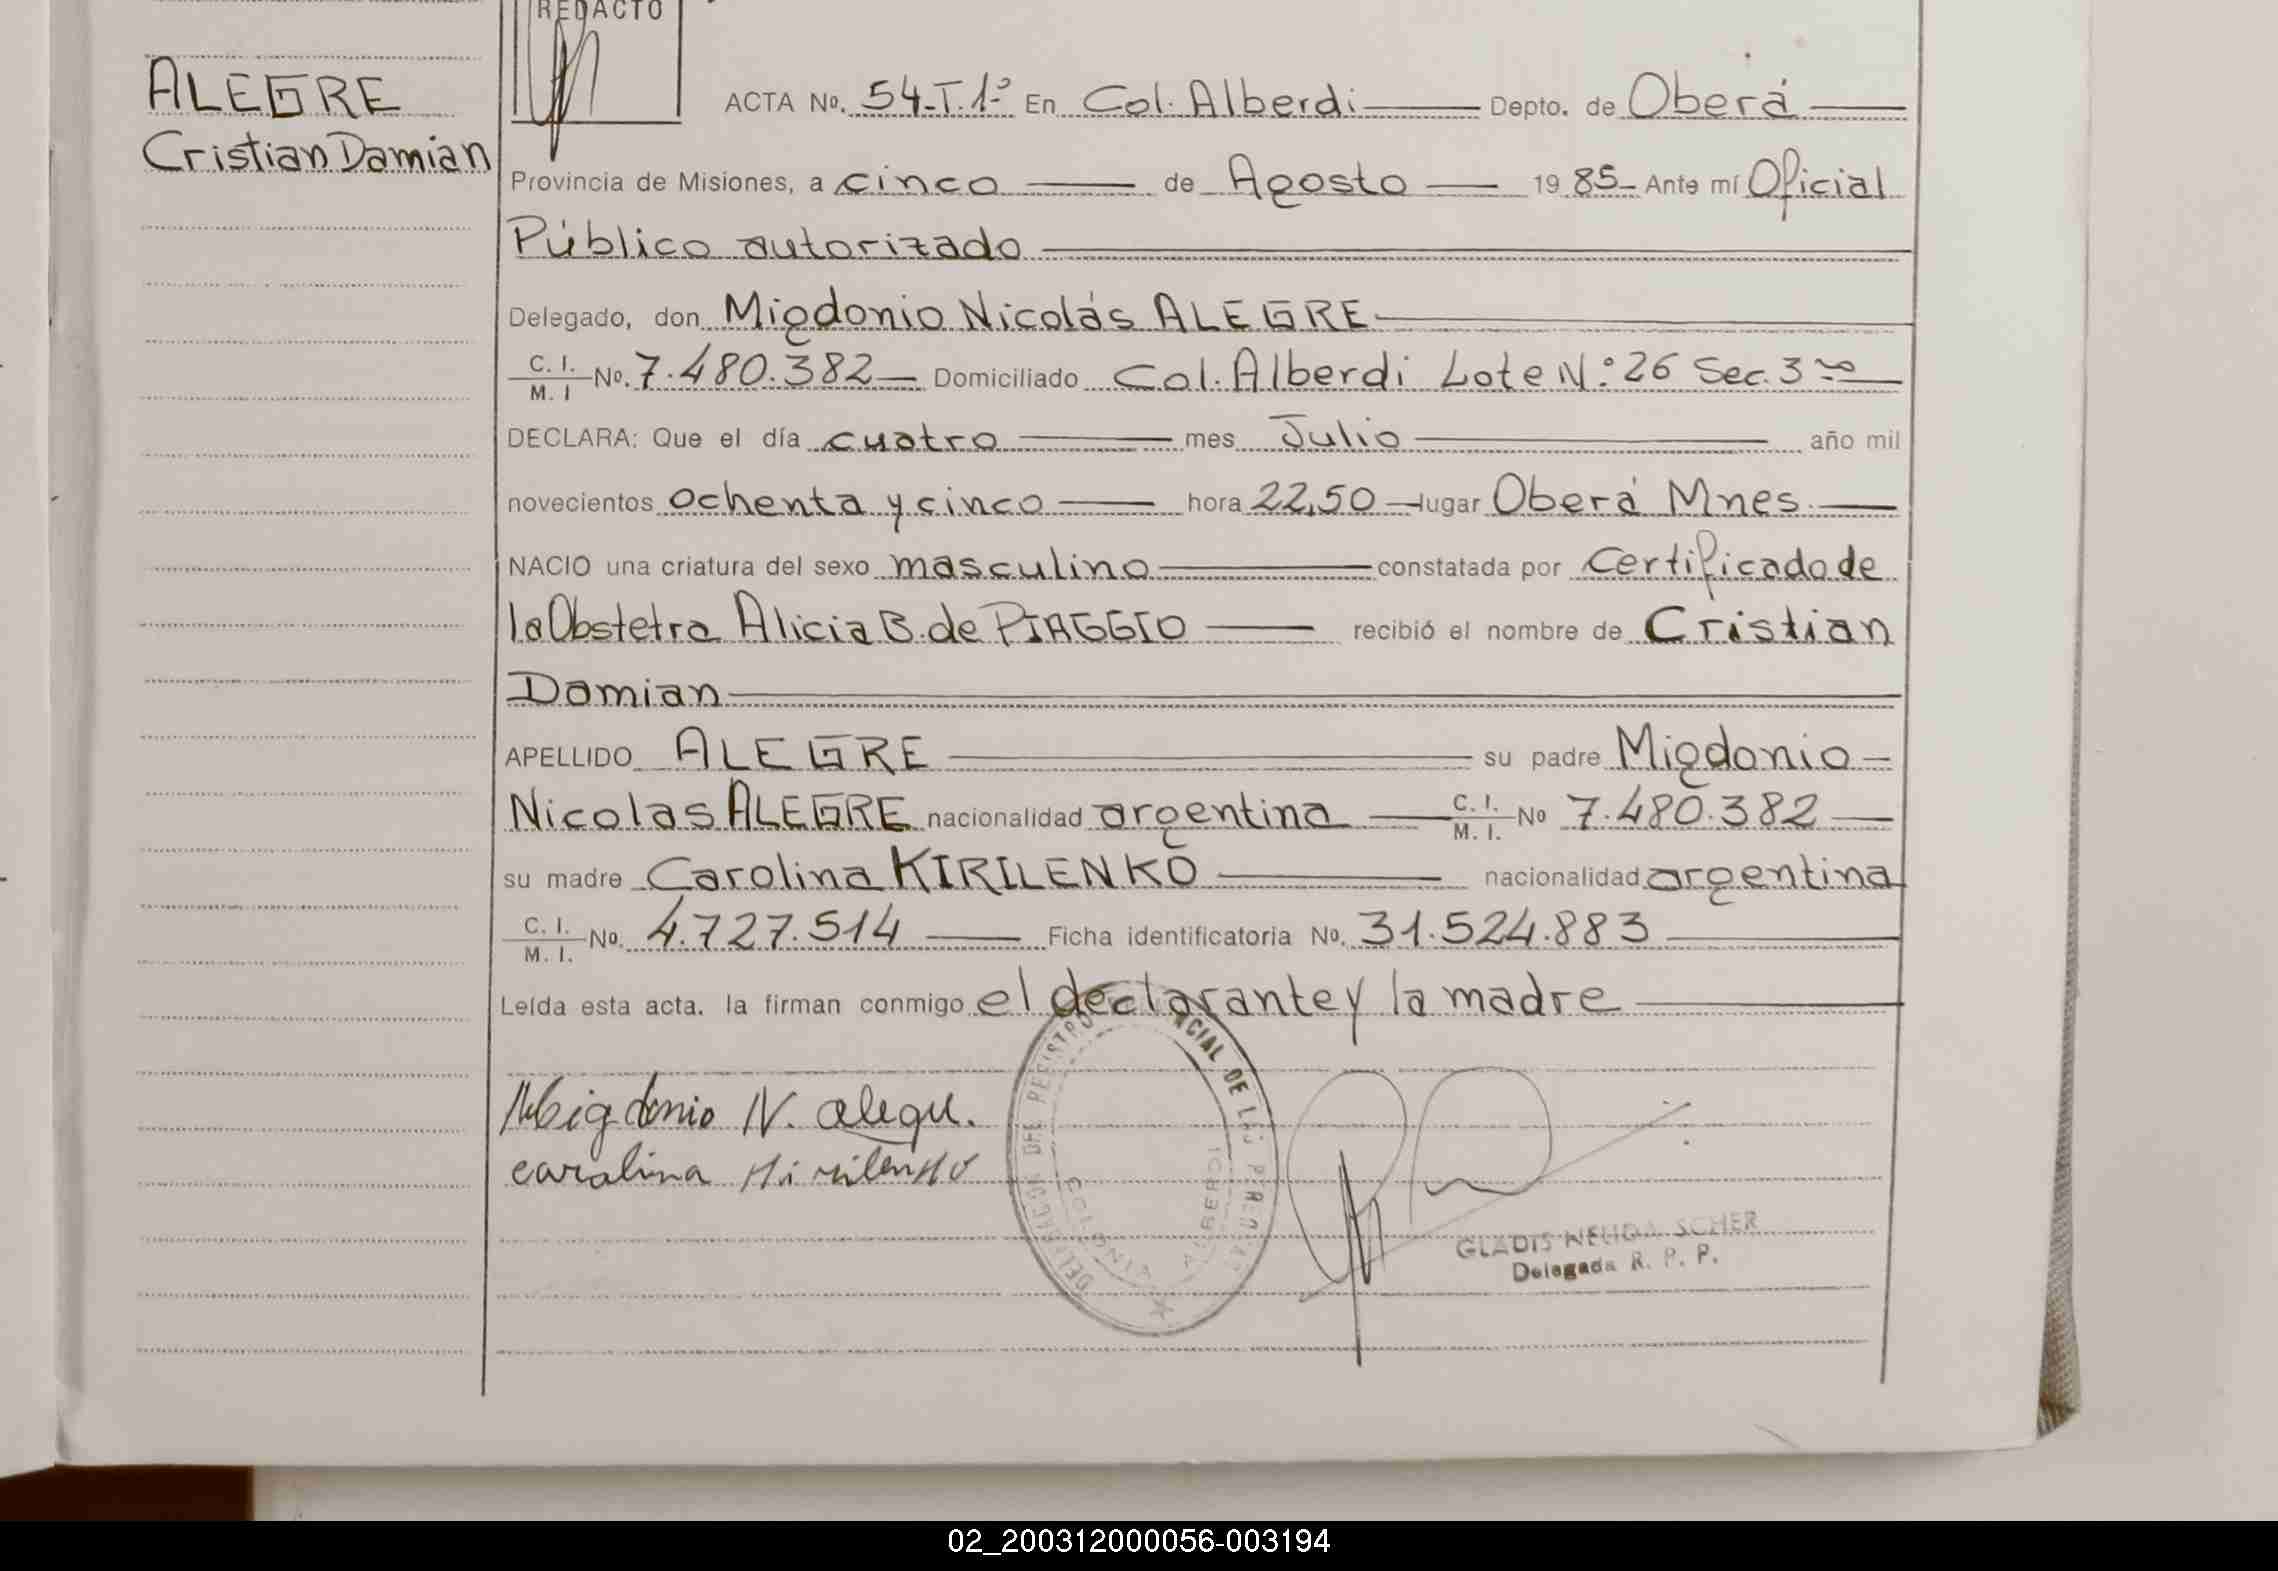 REDACTO
ALEGRE
Cristian Damian
ACTA No. 54-T.1º En Col. Alberdi Depto. de Oberá
Provincia de Misiones, a cinco de Agosto 1985 Ante mí Oficial
Público autorizado
Delegado, don Migdonio Nicolás ALEGRE
C. I. M. I No. 7.480.382 Domiciliado Col. Alberdi Lote N.º 26 Sec. 3ra
DECLARA: Que el día cuatro mes Julio año mil
novecientos ochenta y cinco hora 22,50 lugar Oberá Mnes.
NACIO una criatura del sexo masculino constatada por Certificado de
la Obstetra Alicia B. de PIAGGIO recibió el nombre de Cristian
Damian
APELLIDO ALEGRE su padre Migdonio
Nicolas ALEGRE nacionalidad argentina C. I. M. I. No 7.480.382
su madre Carolina KIRILENKO nacionalidad argentina
C. I. M. I. No. 4.727.514 Ficha identificatoria No. 31.524.883
Leída esta acta. la firman conmigo el declarante y la madre
Migdonio N. Alegre.
carolina Kirilenko
DEL REGISTRO CIAL DE LAS PERSONAS
COLONIA ALBERDI
GLADIS NELIDA SCHER
Delegada R. P. P.
02_200312000056-003194